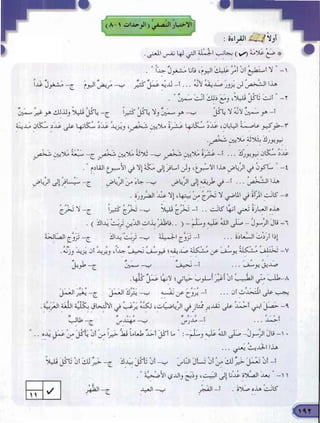 الاختبار النصفي (الوحدات ١-٨)
أولاً القراءة :
* ضع علامة (✓) بجانب الجملة التي لها نفس المعنى.
١- " لا أستطيع أن أمر عليك اليوم، فأنا مشغول جداً " .
هذا الشخص لن يزور صديقه لأنه ... أ- لديه عمل كثير ب- مريض اليوم ج- مشغول غداً
٢- " أنت تأكل قليلاً، ومع ذلك أنت سمين " .
أ- هو سمين لأنه لا يأكل ب- هو سمين ولا يأكل كثيراً ج- يأكل قليلاً ولذلك هو غير سمين
٣- طوكيو عاصمة اليابان، عدد سكانها عشرة ملايين شخص، ويزيد عدد سكانها على عدد سكان مدينة
نيويورك بثلاثة ملايين شخص.
عدد سكان نيويورك ... أ- عشرة ملايين شخص ب- ثلاثة ملايين شخص ج- سبعة ملايين شخص
٤- " سأكون في الرياض هذا الأسبوع، ولن أسافر إلى مكة إلا في الأسبوع القادم " .
هذا الشخص ... أ- في طريقه إلى الرياض ب- جاء من الرياض ج- سيسافر إلى الرياض
٥- كانت المرأة في الماضي لا تخرج من بيتها، إلا عند الضرورة .
هذه العبارة تعني أنها كانت ... أ- تخرج قليلاً ب- تخرج كثيراً ج- لا تخرج
٦- قال الرسول - صلى الله عليه وسلم - : ( .. فاظفر بذات الدين تربت يداك ) .
إذا أردت السعادة ... أ- تزوج الجميلة ب- تربت يداك ج- تزوج الصالحة
٧- تختلف مشكلة يوسف عن مشكلة صديقه؛ فيوسف نحيف جداً، ويريد أن يزيد وزنه.
صديق يوسف ... أ- نحيف ب- سمين ج- طويل
٨- طلب مني الطبيب أن أغير أسلوب حياتي؛ لأنها عمل كلها.
يجب على المتحدث أن ... أ- يروح عن نفسه ب- يترك العمل ج- يغير العمل
٩- حصل ابني أحمد على تقدير ممتاز في الرياضيات، لكنه يرغب في الالتحاق بكلية اللغة العربية.
أحمد ... أ- مدرس ب- مهندس ج- طالب
١٠- قال الرسول - صلى الله عليه وسلم - : " ما أكل أحد طعاماً قط خيراً من أن يأكل من عمل يده .. "
هذا الحديث يعني ...
أ- أن تعمل خير لك من أن تسأل الناس ب- أن تأكل بيدك ج- خير لك أن تأكل قليلاً
١١- " بعد الصلاة عدنا إلى البيت، وذبح والدي الأضحية " .
كانت هذه صلاة . أ- الفجر ب- العيد ج- الظهر
١١ ✓
١٩٢